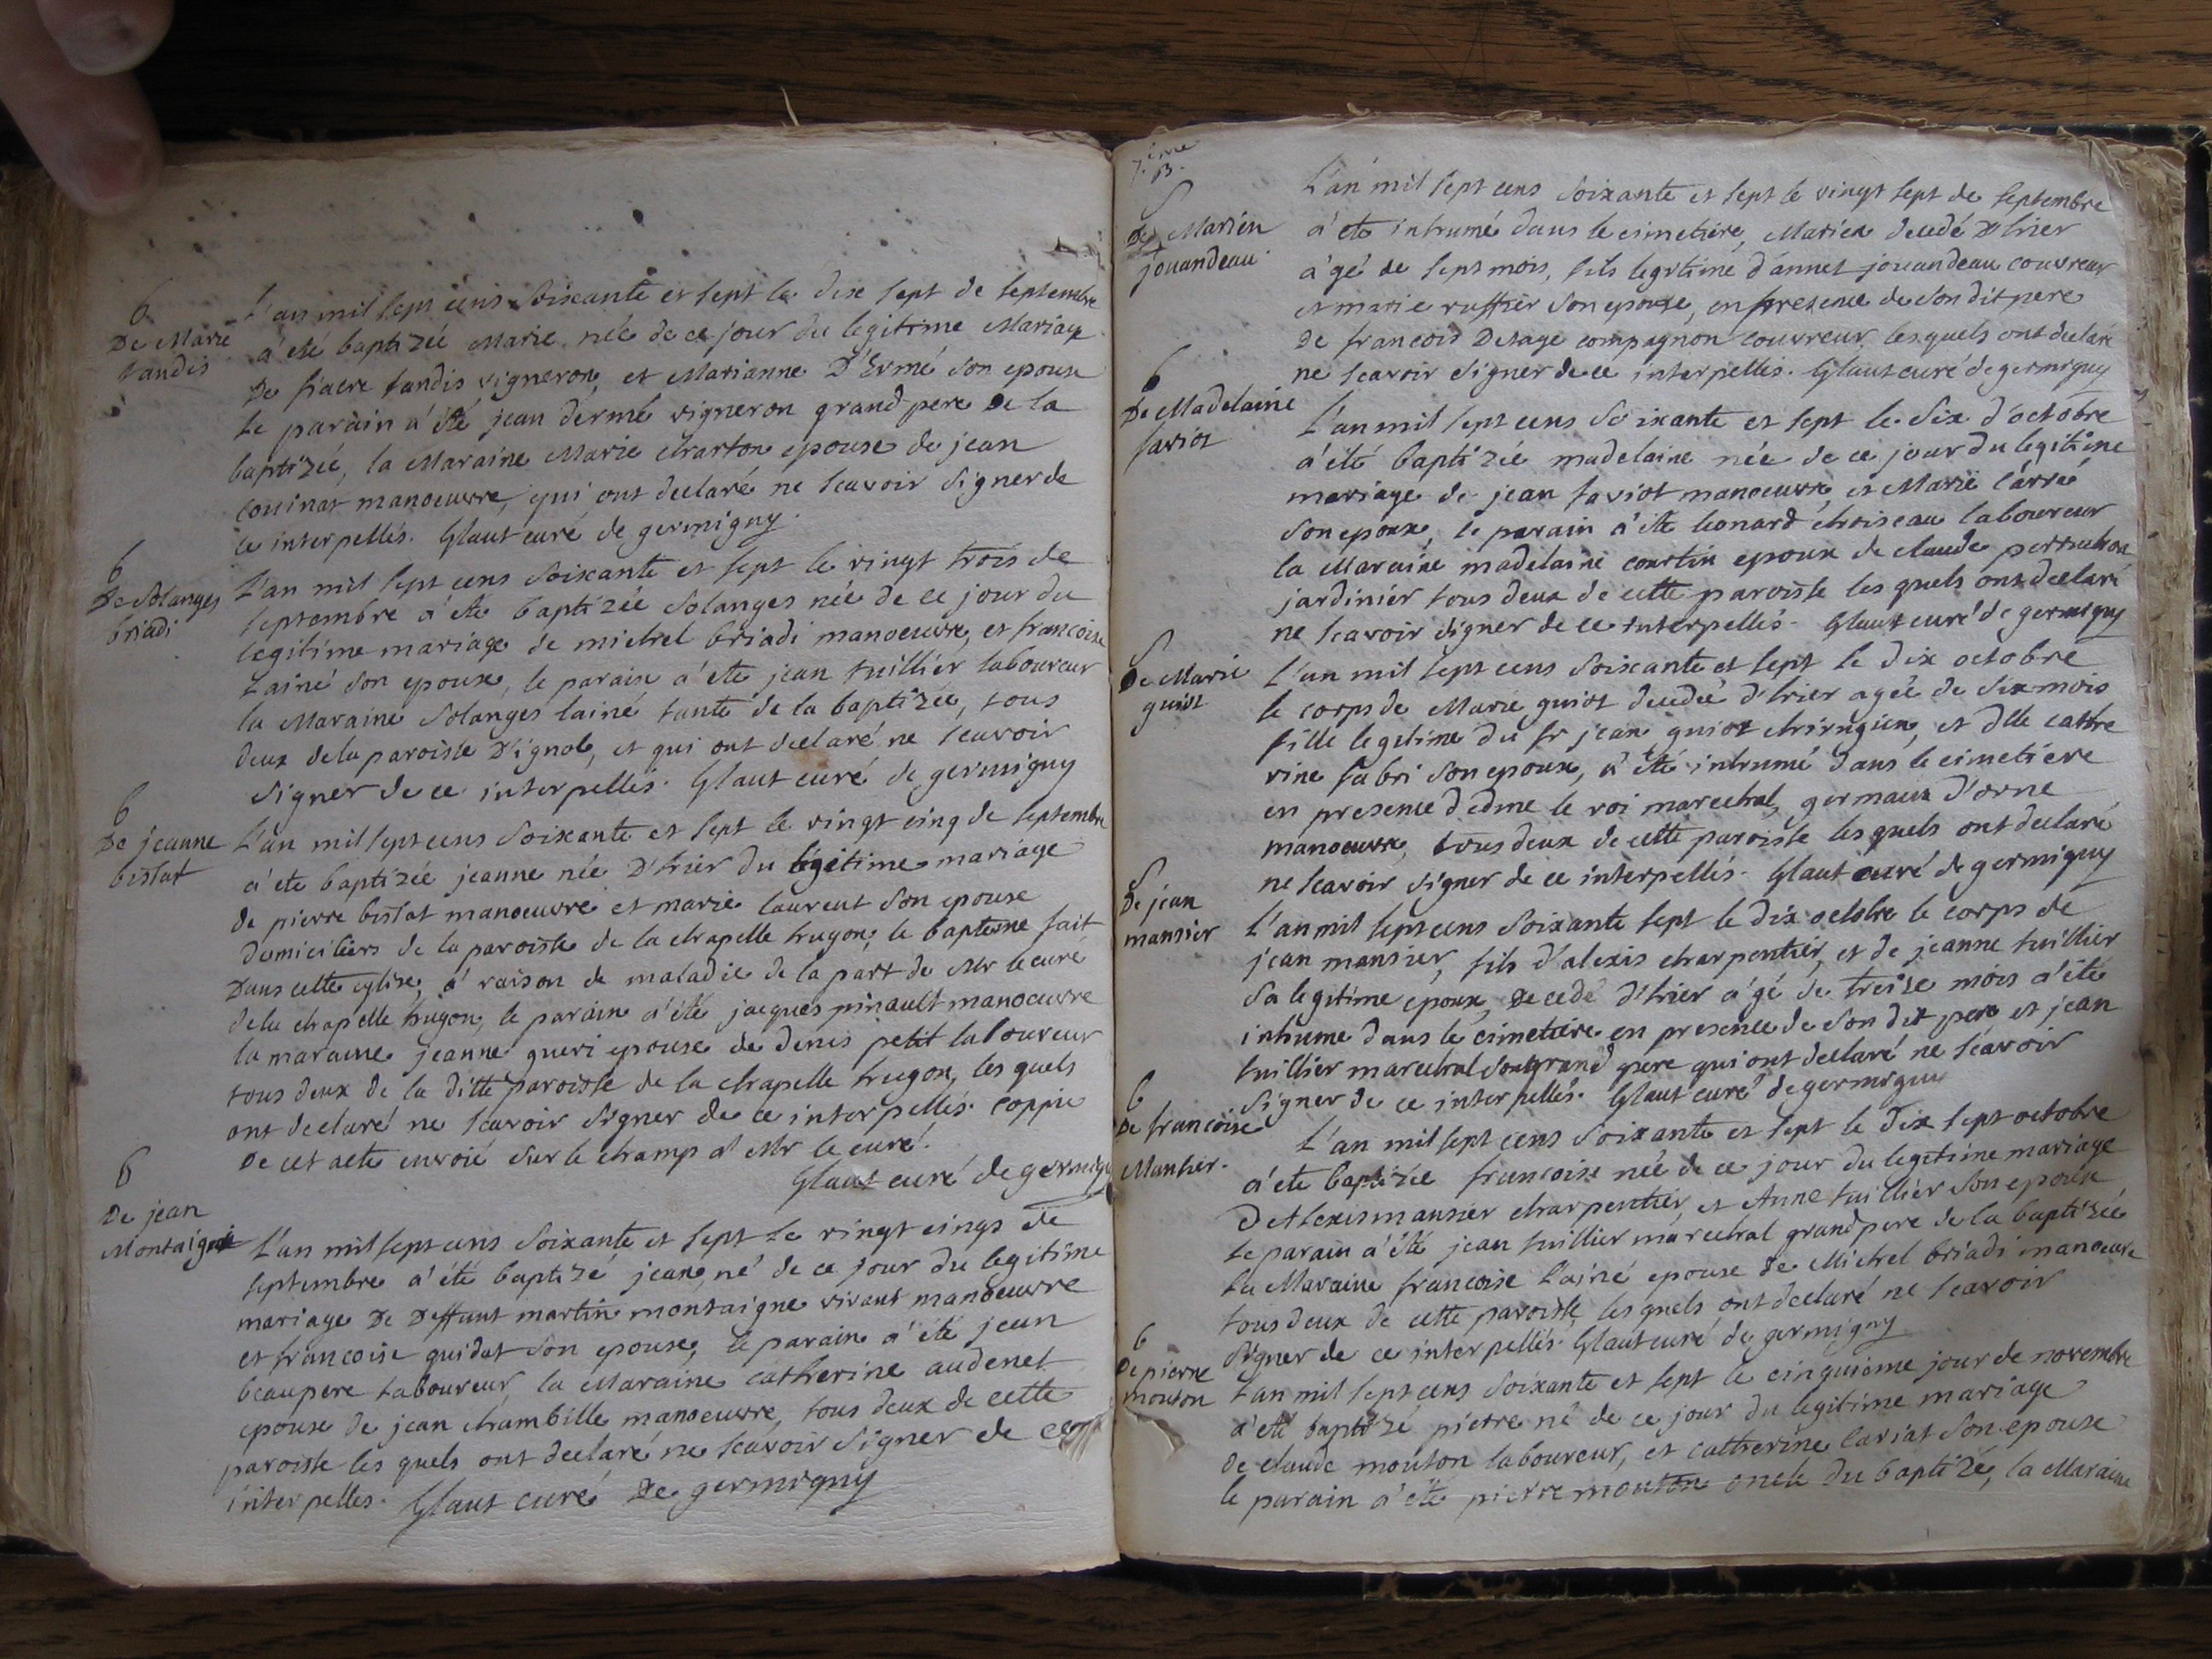 B
De Marie
tandis
L'an mil sept cens soixante et sept le dix sept de septembre
a'eté baptizée Marie née de ce jour du legitime Mariage
De fiacre tandis vigneron, et Marianne D'Ermé son epouse
le parain a'été jean dermé vigneron grand pere De la
baptizée, la Maraine Marie charton epouse de jean
couinat manoeuvre, qui ont declaré ne scavoir signer de
ce interpellés. Glaut curé de germigny.
B
De Solanges
briadi
L'an mil sept cens soixante et sept le vingt trois de
septembre a'été baptizée Solanges née de ce jour du
legitime mariage de michel briadi manoeuvre, et francoise
Lainé son epouse, le parain a'ete jean tuillier laboureur
la Maraine Solanges lainé tante de la baptizée, tous
deux de la paroisse D'ignol, et qui ont declaré ne scavoir
signer de ce interpellés. Glaut curé de germigny
B
De jeanne
bistat
L'an mil sept cens soixante et sept le vingt cinq de septembre
a'ete baptizée jeanne née D'hier du legitime mariage
de pierre bistat manoeuvre et marie laurent son epouse
domiciliers de la paroisse de la chapelle hugon; le bapteme fait
Dans cette eglise, a' raison de maladie de la part de Mr le curé
de la chapelle hugon, le parain a'été jacques pinault manoeuvre
la maraine jeanne queri epouse de denis petit laboureur
tous deux de la ditte paroisse de la chapelle hugon, les quels
ont declaré ne scavoir signer de ce interpellés. coppie
De cet acte envoié sur le champ a' Mr le curé.
Glaut curé de germigny
B
De jean
Montaigne
L'an mil sept cens soixante et sept le vingt cinqs de
septembre a'été baptizé jean, né de ce jour du legitime
mariage De Deffunt martin montaigne vivant manoeuvre
et francoise guidat son epouse, le parain a'été jean
beaupere laboureur, la Maraine catherine audenet
epouse de jean chambille manoeuvre, tous deux de cette
paroisse les quels ont declaré ne scavoir signer de ce
interpelles. Glaut curé De germigny
7.eme
B.
S
De Marien
jouandeau.
L'an mil sept cens soixante et sept le vingt sept de septembre
a'ete inhumé dans le cimetiere, Marien decedé D'hier
a'gé de sept mois, fils legitime d'annet jouandeau couvreur
et marie ruffier son epouse, en presence de son dit pere
de francois Desage compagnon couvreur, lesquels ont declaré
ne scavoir signer de ce interpellés. Glaut curé de germigny
B
De Madelaine
saviot
L'an mil sept cens soixante et sept le six d'octobre
a'été baptizée madelaine née de ce jour du legitime
mariage de jean saviot manoeuvre, et Marie carré
son epouse, le parain a'été leonard choiseau laboureur
la Maraine madelaine courtin epouse de claude
jardinier tous deux de cette paroisse les quels ont declaré
ne scavoir signer de ce interpellés. Glaut curé de germigny
S
De Marie
guiot
L'an mil sept cens soixante et sept le dix octobre
le corps de Marie guiot decedée d'hier agée de six mois
fille legitime du sr jean guiot chirugien, et dlle cathe
rine fabri son epouse, a'été inhumé dans le cimetiere
en presence d'edme le roi marechal, germain d'orne
manoeuvre, tous deux de cette paroisse les quels ont declaré
ne scavoir signer de ce interpellés. Glaut curé de germigny
S
De jean
mansier
L'an mil sept cens soixante sept le dix octobre le corps de
jean mansier, fils d'alexis charpentier, et de jeanne tuillier
sa legitime epouse, decedé d'hier a'gé de treize mois a'été
inhume dans le cimetiere en presence de son dit pere et jean
tuillier marechal son grand pere qui ont declaré ne scavoir
signer de ce interpellés. Glaut curé de germigny
B
De francoise
Mansier.
L'an mil sept cens soixante et sept le dix sept octobre
a'ete baptizée francoise née de ce jour du legitime mariage
D'Alexis mansier charpentier, et Anne tuillier son epouse
le parain a'été jean tuillier marechal grand pere de la baptizée
la Maraine francoise Lainé epouse de Michel briadi manoeuvre
tous deux de cette paroisse, les quels ont declaré ne scavoir
signer de ce interpellés. Glaut curé de germigny
B
De pierre
mouton
L'an mil sept cens soixante et sept le cinquieme jour de novembre
a'eté baptizé pierre né de ce jour du legitime mariage
de claude mouton laboureur, et catherine cariat son epouse
le parain a'été pierre mouton oncle du baptizé, la Maraine